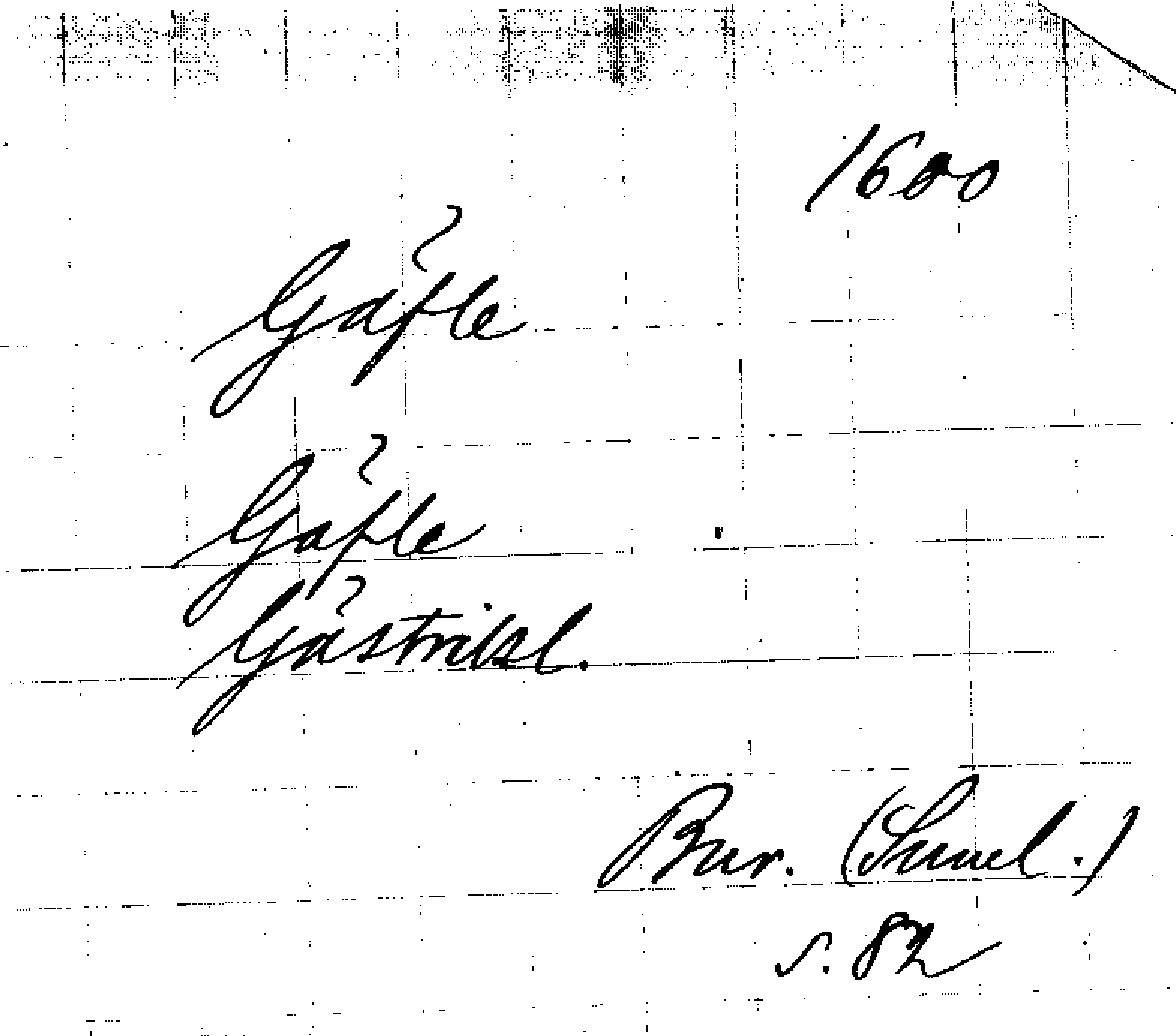 1600
Gäfle
Gäfle
Gästrikl.
Bur. (Suml.)
s. 82